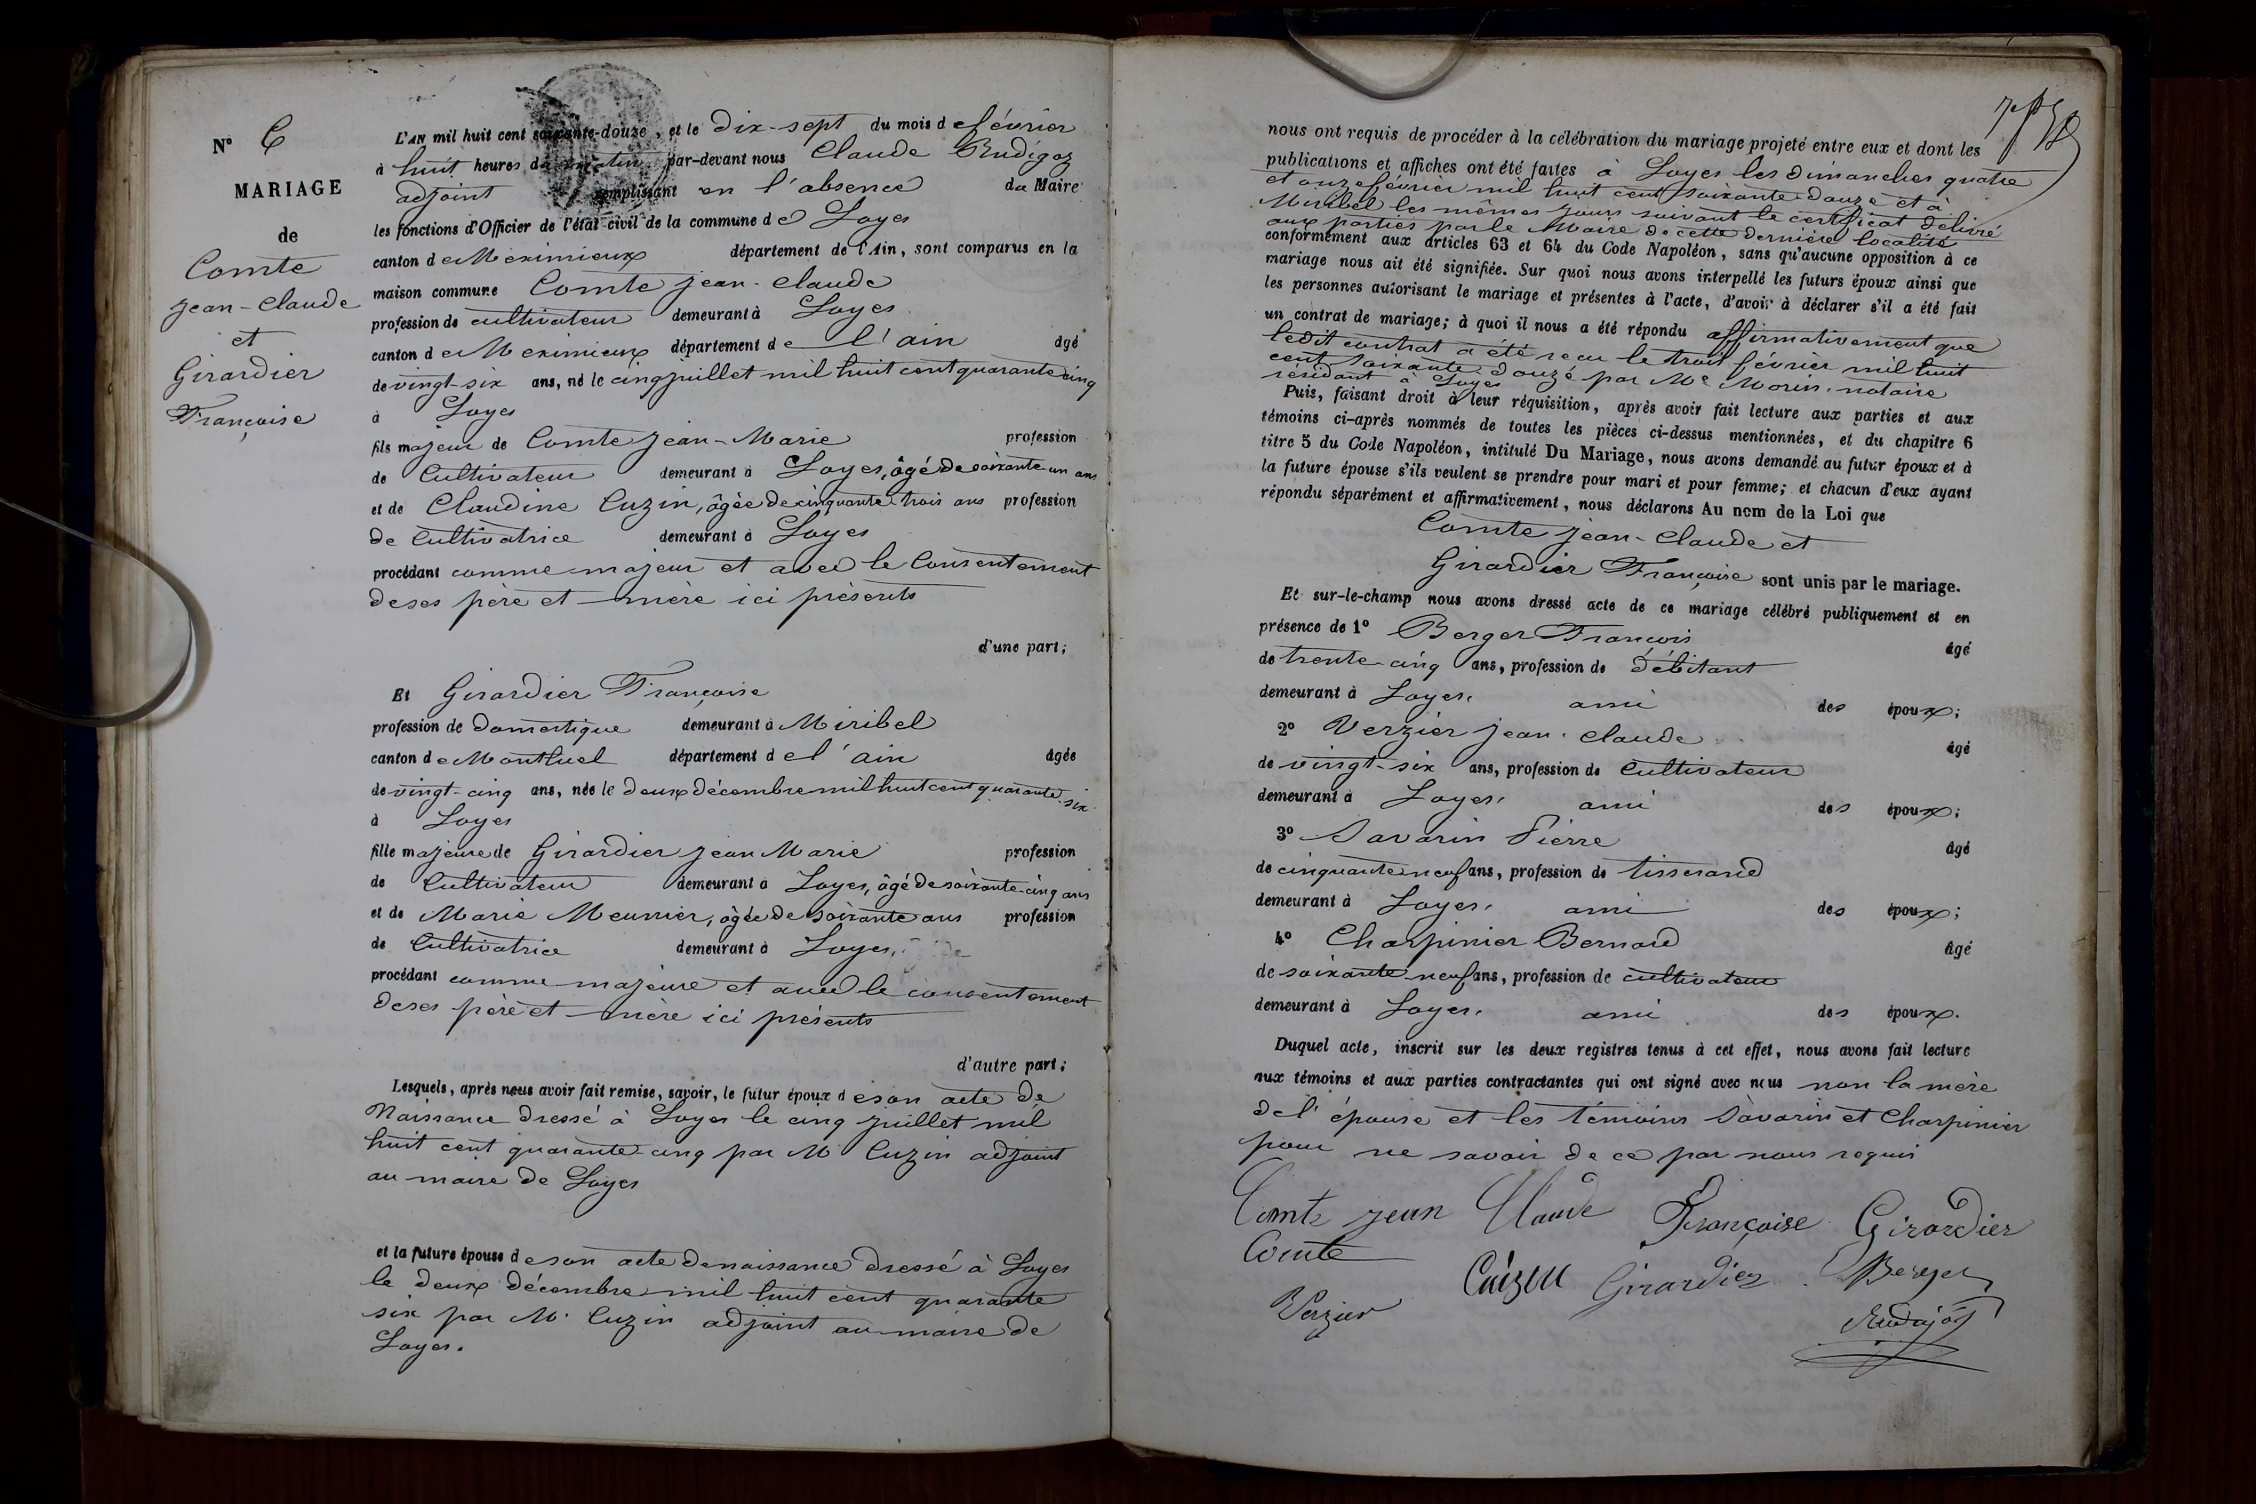 N° 6
MARIAGE
de
Comte
jean-claude
et
Girardier
Françoise
L'AN mil huit cent soixante-douze, et le dix-sept du mois de février
à huit heures du matin par-devant nous Claude Rudigoz
adjoint remplissant en l'absence du Maire
les fonctions d'Officier de l'état-civil de la commune de Loyes
canton de Meximieux département de l'Ain, sont comparus en la
maison commune Comte jean-claude
profession de cultivateur demeurant à Loyes
canton de Meximieux département de l'ain âgé
de vingt-six ans, né le cinq juillet mil huit cent quarante cinq
à Loyes
fils majeur de Comte jean-Marie profession
de Cultivateur demeurant à Loyes, âgé de soixante-un ans
et de Claudine Cuzin, âgée de cinquante-trois ans profession
de Cultivatrice demeurant à Loyes
procédant comme majeur et avec le Consentement
de ses père et mère ici présents
d'une part;
Et Girardier Françoise
profession de domestique demeurant à Miribel
canton de Montluel département de l'ain âgée
de vingt-cinq ans, née le deux décembre mil huit cent quarante-six
à Loyes
fille majeure de Girardier jean Marie profession
de Cultivateur demeurant à Loyes, âgé de soixante-cinq ans
et de Marie Meunier, âgée de soixante ans profession
de Cultivatrice demeurant à Loyes,
procédant comme majeure et avec le consentement
de ses père et mère ici présents
d'autre part;
Lesquels, après nous avoir fait remise, savoir, le futur époux de son acte de
Naissance dressé à Loyes le cinq juillet mil
huit cent quarante-cinq par M Cuzin adjoint
au maire de Loyes
et la future épouse de son acte de naissance dressé à Loyes
le deux décembre mil huit cent quarante
six par M. Cuzin adjoint au maire de
Loyes.
nous ont requis de procéder à la célébration du mariage projeté entre eux et dont les
publications et affiches ont été faites à Loyes les dimanches quatre
et onze février mil huit cent soixante douze et à
Miribel les mêmes jours suivant le certificat délivré
aux parties par le Maire de cette dernière localité
conformément aux articles 63 et 64 du Code Napoléon, sans qu'aucune opposition à ce
mariage nous ait été signifiée. Sur quoi nous avons interpellé les futurs époux ainsi que
les personnes autorisant le mariage et présentes à l'acte, d'avoir à déclarer s'il a été fait
un contrat de mariage; à quoi il nous a été répondu affirmativement que
ledit contrat a été reçu le trois février mil huit
cent soixante douze par Me Morin, notaire
résidant à Loyes
Puis, faisant droit à leur réquisition, après avoir fait lecture aux parties et aux
témoins ci-après nommés de toutes les pièces ci-dessus mentionnées, et du chapitre 6
titre 5 du Code Napoléon, intitulé Du Mariage, nous avons demandé au futur époux et à
la future épouse s'ils veulent se prendre pour mari et pour femme; et chacun d'eux ayant
répondu séparément et affirmativement, nous déclarons Au nom de la Loi que
Comte jean-claude et
Girardier Françoise sont unis par le mariage.
Et sur-le-champ nous avons dressé acte de ce mariage célébré publiquement et en
présence de 1° Berger François âgé
de trente-cinq ans, profession de débitant
demeurant à Loyes, ami des époux;
2° Verzier jean-claude âgé
de vingt-six ans, profession de Cultivateur
demeurant à Loyes, ami des époux;
3° Savarin Pierre âgé
de cinquante neuf ans, profession de tisserand
demeurant à Loyes, ami des époux;
4° Charpinier Bernard âgé
de soixante-neuf ans, profession de cultivateur
demeurant à Loyes, ami des époux.
Duquel acte, inscrit sur les deux registres tenus à cet effet, nous avons fait lecture
aux témoins et aux parties contractantes qui ont signé avec nous non la mère
de l'épouse et les témoins Savarin et Charpinier
pour ne savoir de ce par nous requis
Comte jean Claude Françoise Girardier
Comte Cuizin Girardier Berger
Verzier Rudigoz